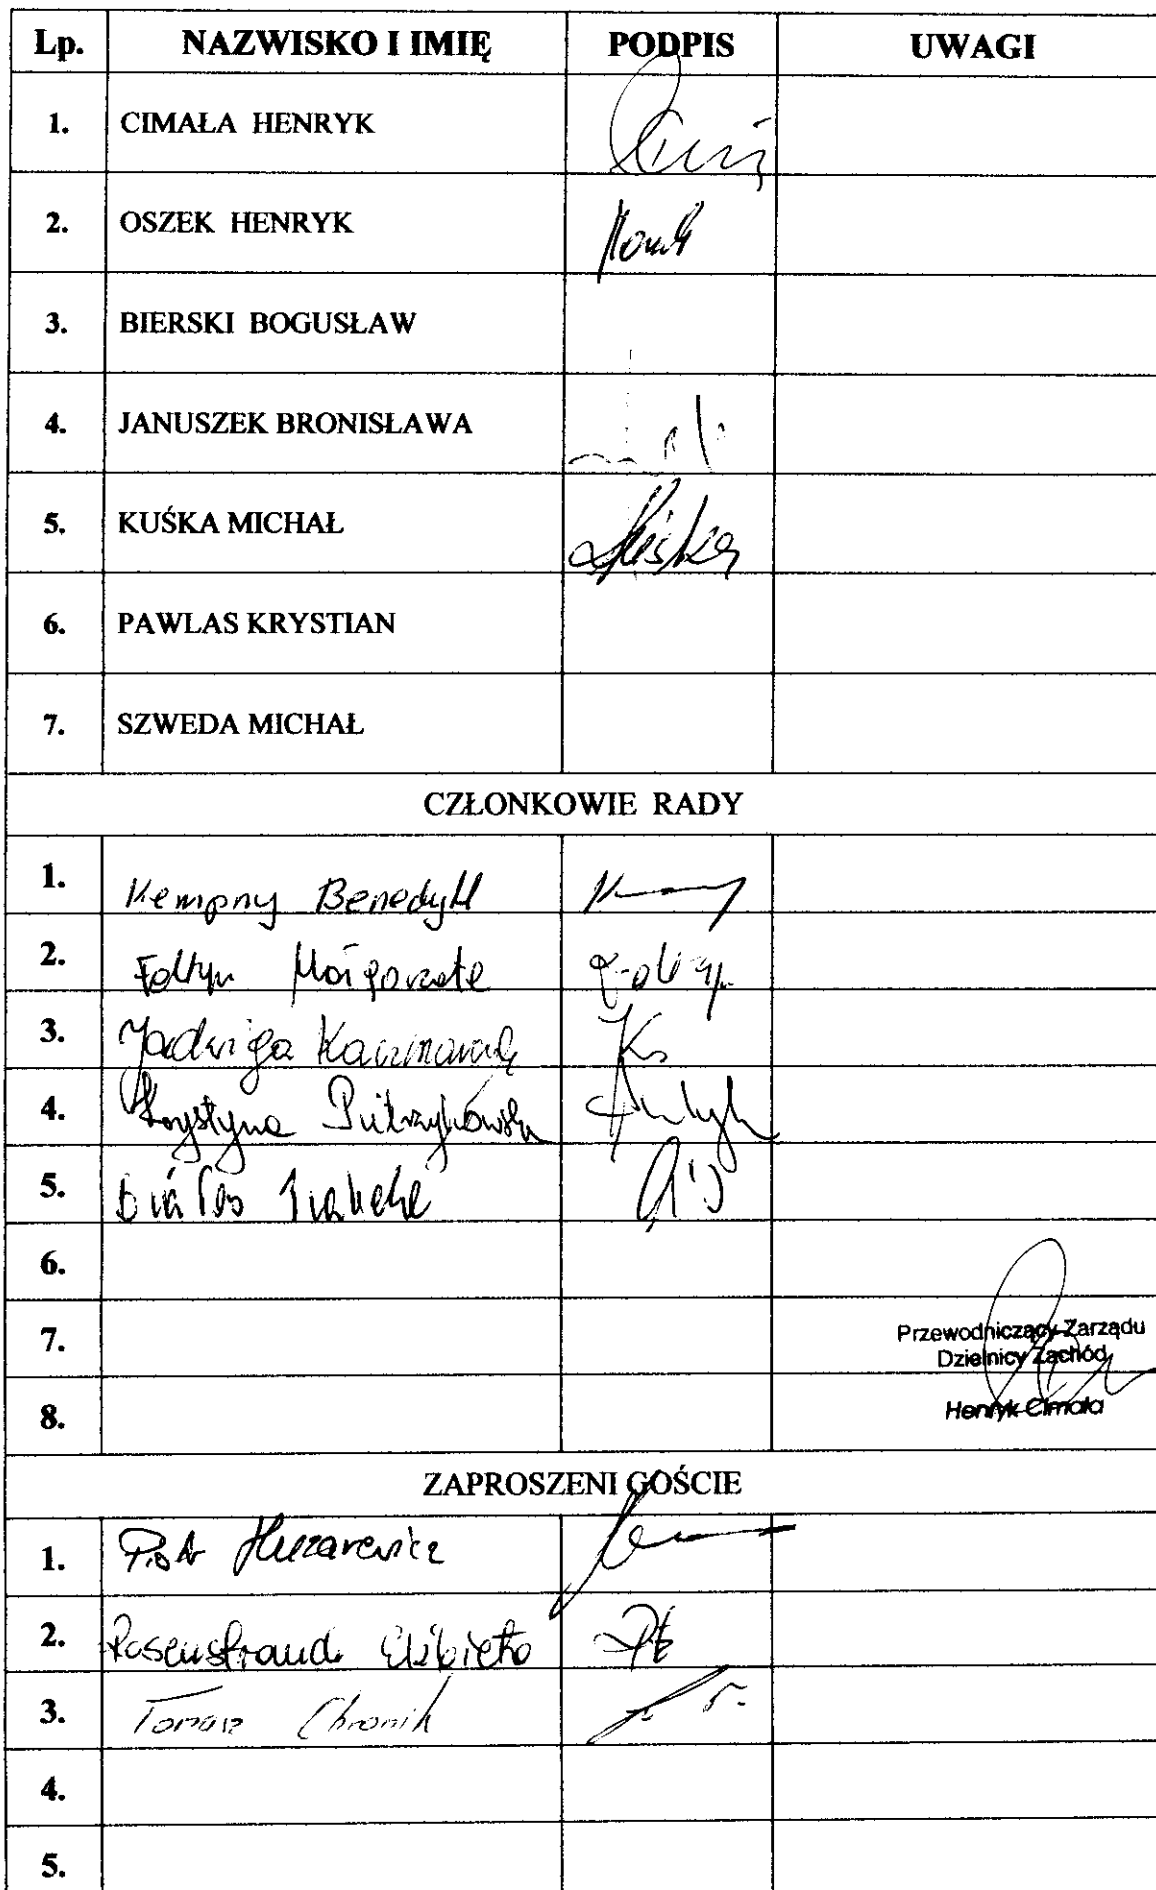 Lp. NAZWISKO I IMIĘ PODPIS UWAGI
1. CIMAŁA HENRYK
2. OSZEK HENRYK
3. BIERSKI BOGUSŁAW
4. JANUSZEK BRONISŁAWA
5. KUŚKA MICHAŁ Kuśka
6. PAWLAS KRYSTIAN
7. SZWEDA MICHAŁ
CZŁONKOWIE RADY
1. Kempny Benedykt
2. Fołtyn Małgorzata
3. Jadwiga Kaczmarczyk
4. Krystyna
5. Białas Izabela
6.
7.
Przewodniczący Zarządu
Dzielnicy Zachód
Henryk Cimała
8.
ZAPROSZENI GOŚCIE
1. Piotr Huzarewicz
2. Rosenstrauch Elżbieta
3. Tomasz Chronik
4.
5.